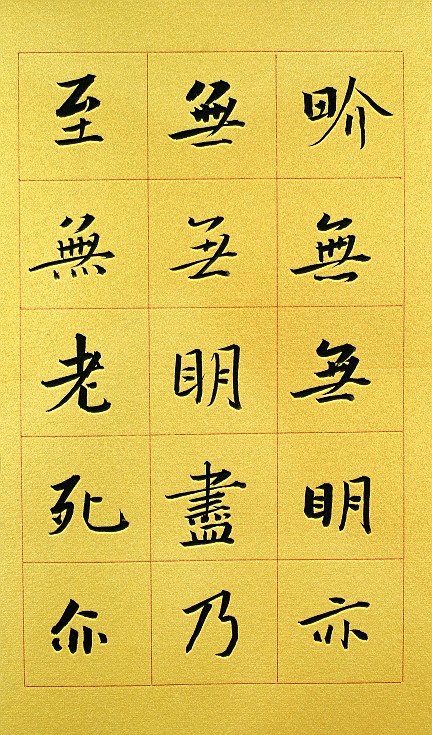 畍無無明亦
無無明盡乃
至無老死亦